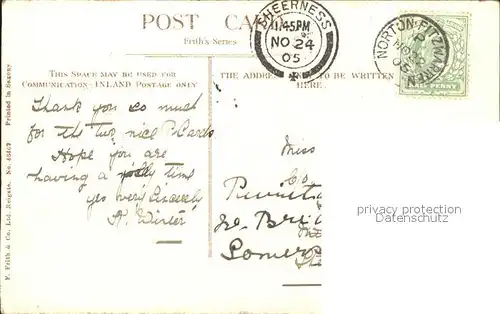 POST CA
Frith's Series
SHEERNESS
11.45PM
NO 24
05
NORTON-FITZWARREN
NO
05
HALF PENNY
THIS SPACE MAY BE USED FOR
COMMUNICATION INLAND POSTAGE ONLY
THE ADDRESS TO BE WRITTEN
HERE.
Thank you so much
for the two nice P Cards
Hope you are
having a jolly time
yrs very sincerely
A. Winter
Miss
Somers
privacy protection
DSGVO/GDPR
F. Frith & Co. Ltd. Reigate. No. Printed in Saxony